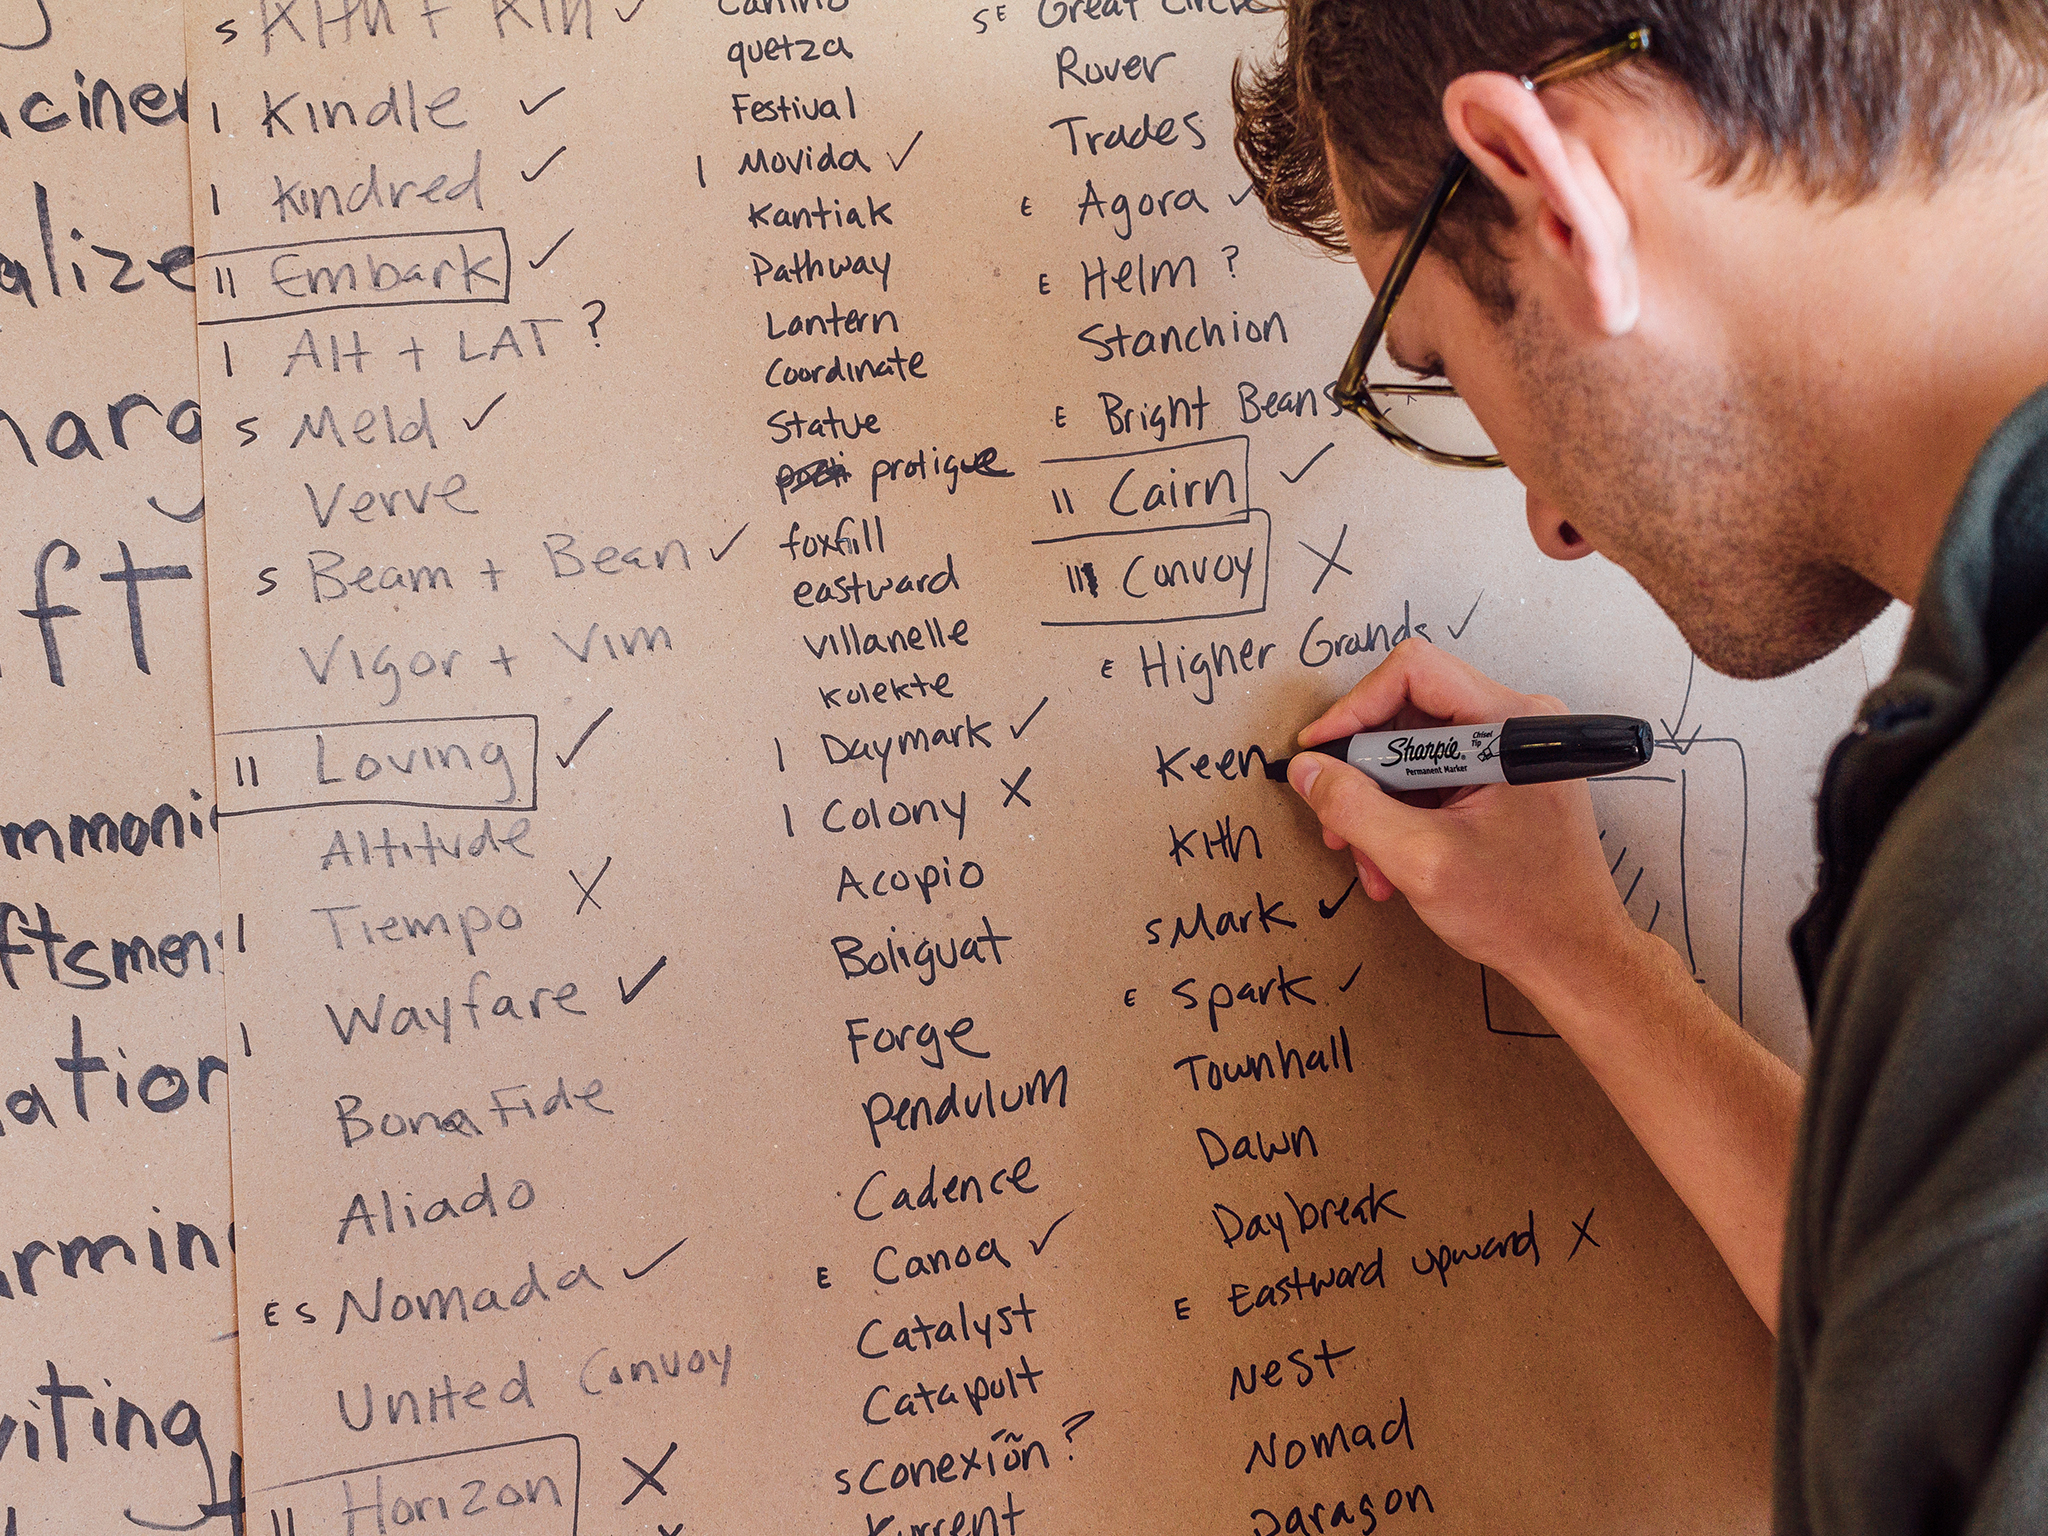 S Kith + Kin ✓
I Kindle ✓
I Kindred ✓
II Embark ✓
I Alt + LAT ?
S Meld ✓
Verve
S Beam + Bean ✓
Vigor + Vim
II Loving ✓
Altitude
I Tiempo X
I Wayfare ✓
Bona Fide
Aliado
E S Nomada ✓
United Convoy
II Horizon X
quetza
Festival
I Movida ✓
Kantiak
Pathway
Lantern
Coordinate
Statue
protigue
foxfill
eastward
villanelle
kolekte
I Daymark ✓
I Colony X
Acopio
Boliguat
Forge
Pendulum
Cadence
E Canoa ✓
Catalyst
Catapult
S Conexión ?
Kurrent
S E Great Circle
Rover
Trades
E Agora ✓
E Helm ?
Stanchion
E Bright Beans
II Cairn ✓
III Convoy X
E Higher Grands ✓
Keen
Kith
S Mark ✓
E Spark ✓
Townhall
Dawn
Daybreak
E Eastward upward X
Nest
Nomad
Paragon
Sharpie
Permanent Marker
Chisel
Tip